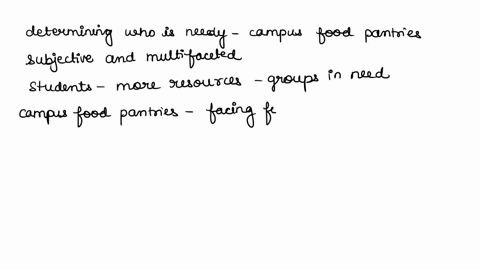 determining who is needy - campus food pantries
subjective and multifaceted
students - more resources - groups in need
campus food pantries - facing fe